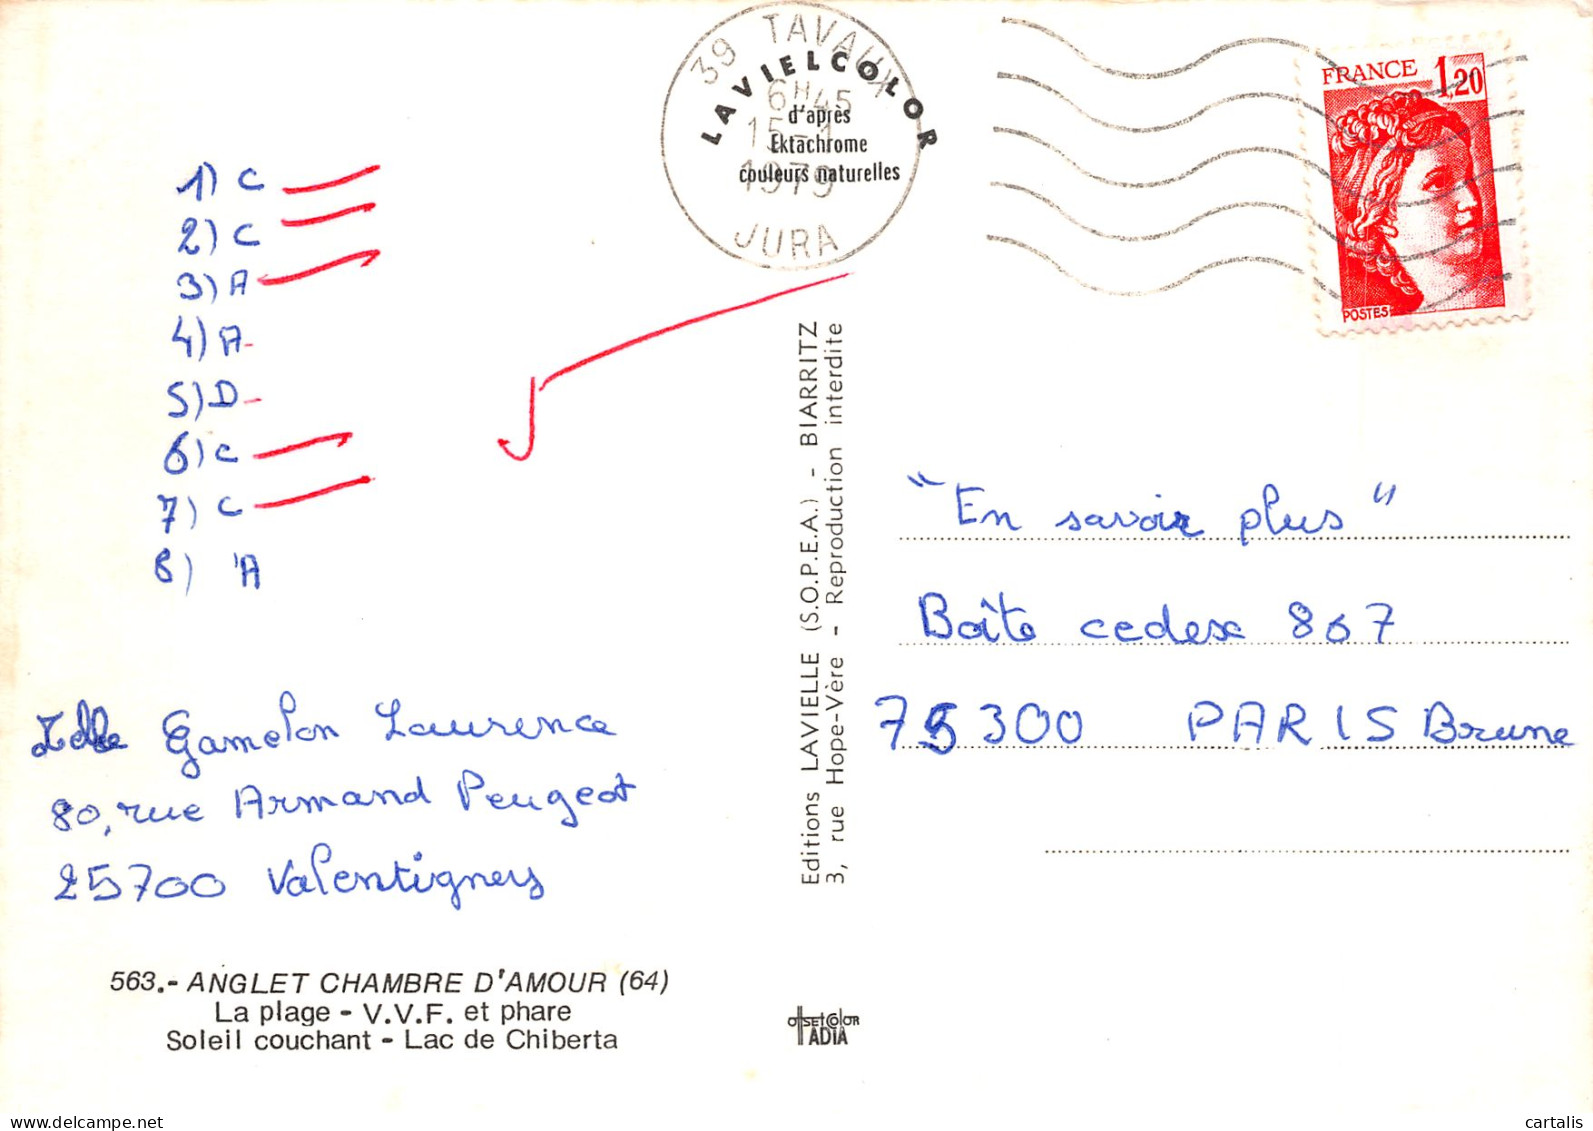 39 TAVAUX
6H45
15-1
1979
JURA
LAVIELCOLOR
d'après
Ektachrome
couleurs naturelles
FRANCE 1,20
POSTES
1) C
2) C
3) A
4) A
5) D
6) C
7) C
8) A
Gamelon Laurence
80, rue Armand Peugeot
25700 Valentigney
563.- ANGLET CHAMBRE D'AMOUR (64)
La plage - V.V.F. et phare
Soleil couchant - Lac de Chiberta
Editions LAVIELLE (S.O.P.E.A.) - BIARRITZ
3, rue Hope-Vère - Reproduction interdite
OffSEtCOlOR
IADIA
"En savoir plus"
Boîte cedex 867
75300 PARIS Brune
Delcampe.net
cartalis